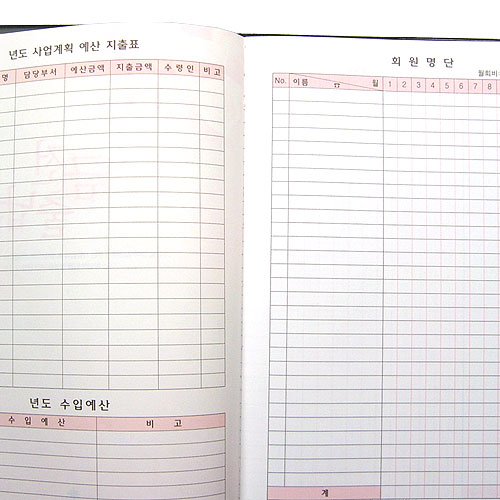 년도 사업계획 예산 지출표
명 담당부서 예산금액 지출금액 수령인 비고
년도 수입예산
수 입 예 산 비 고
회 원 명 단
월회비
No. 이름 월 1 2 3 4 5 6 7 8
계